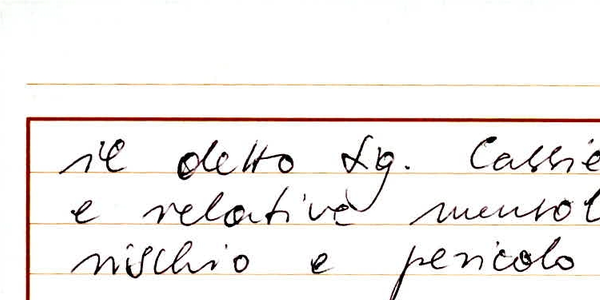 il detto Sig. Cassie
e relative mensol
rischio e pericolo